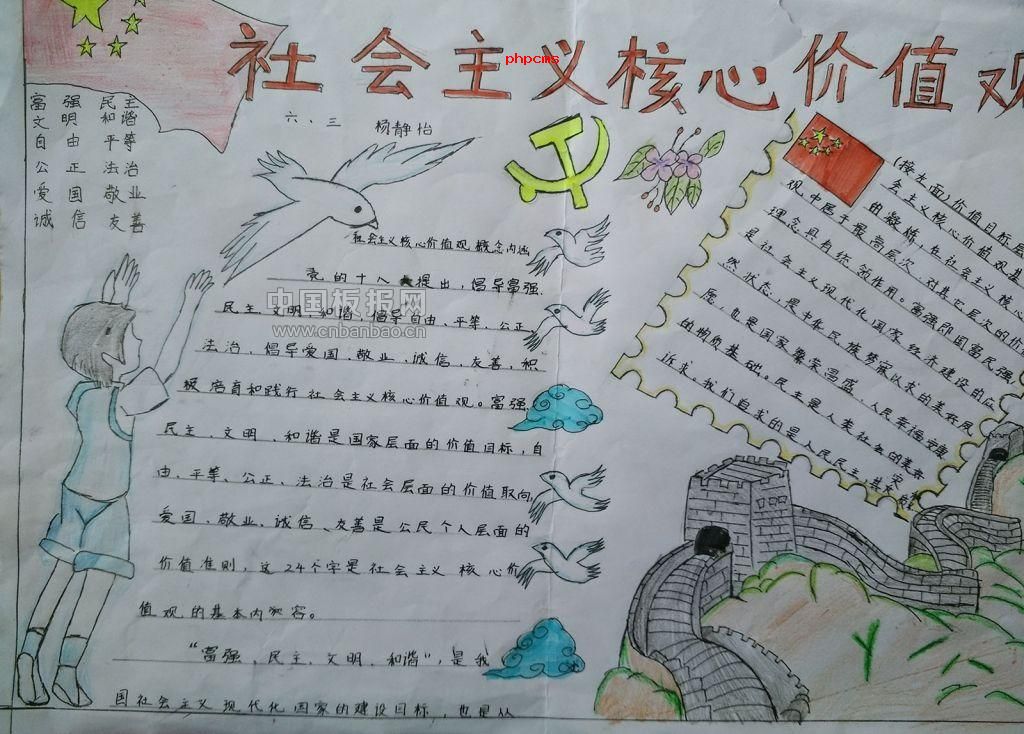 社会主义核心价值观
phpcms
六、三 杨静怡
富强 民主
文明 和谐
自由 平等
公正 法治
爱国 敬业
诚信 友善
社会主义核心价值观概念内涵
党的十八大提出，倡导富强、
民主、文明、和谐，倡导自由、平等、公正、
法治，倡导爱国、敬业、诚信、友善，积
极培育和践行社会主义核心价值观。富强、
民主、文明、和谐是国家层面的价值目标，自
由、平等、公正、法治是社会层面的价值取向，
爱国、敬业、诚信、友善是公民个人层面的
价值准则，这24个字是社会主义核心价
值观的基本内容。
“富强、民主、文明、和谐”，是我
国社会主义现代化国家的建设目标，也是从
中国板报网
www.cnbanbao.cn
(接左面)价值目标层
面的凝练，在社会主义核心价值观基
观中居于最高层次，对其它层次的价
理念具有统领作用。富强即国富民强，
是社会主义现代化国家经济建设的应
然状态，是中华民族梦寐以求的美好夙
愿，也是国家繁荣昌盛、人民幸福安康
的物质基础。民主是人类社会的美好
诉求。我们追求的是人民民主，其实